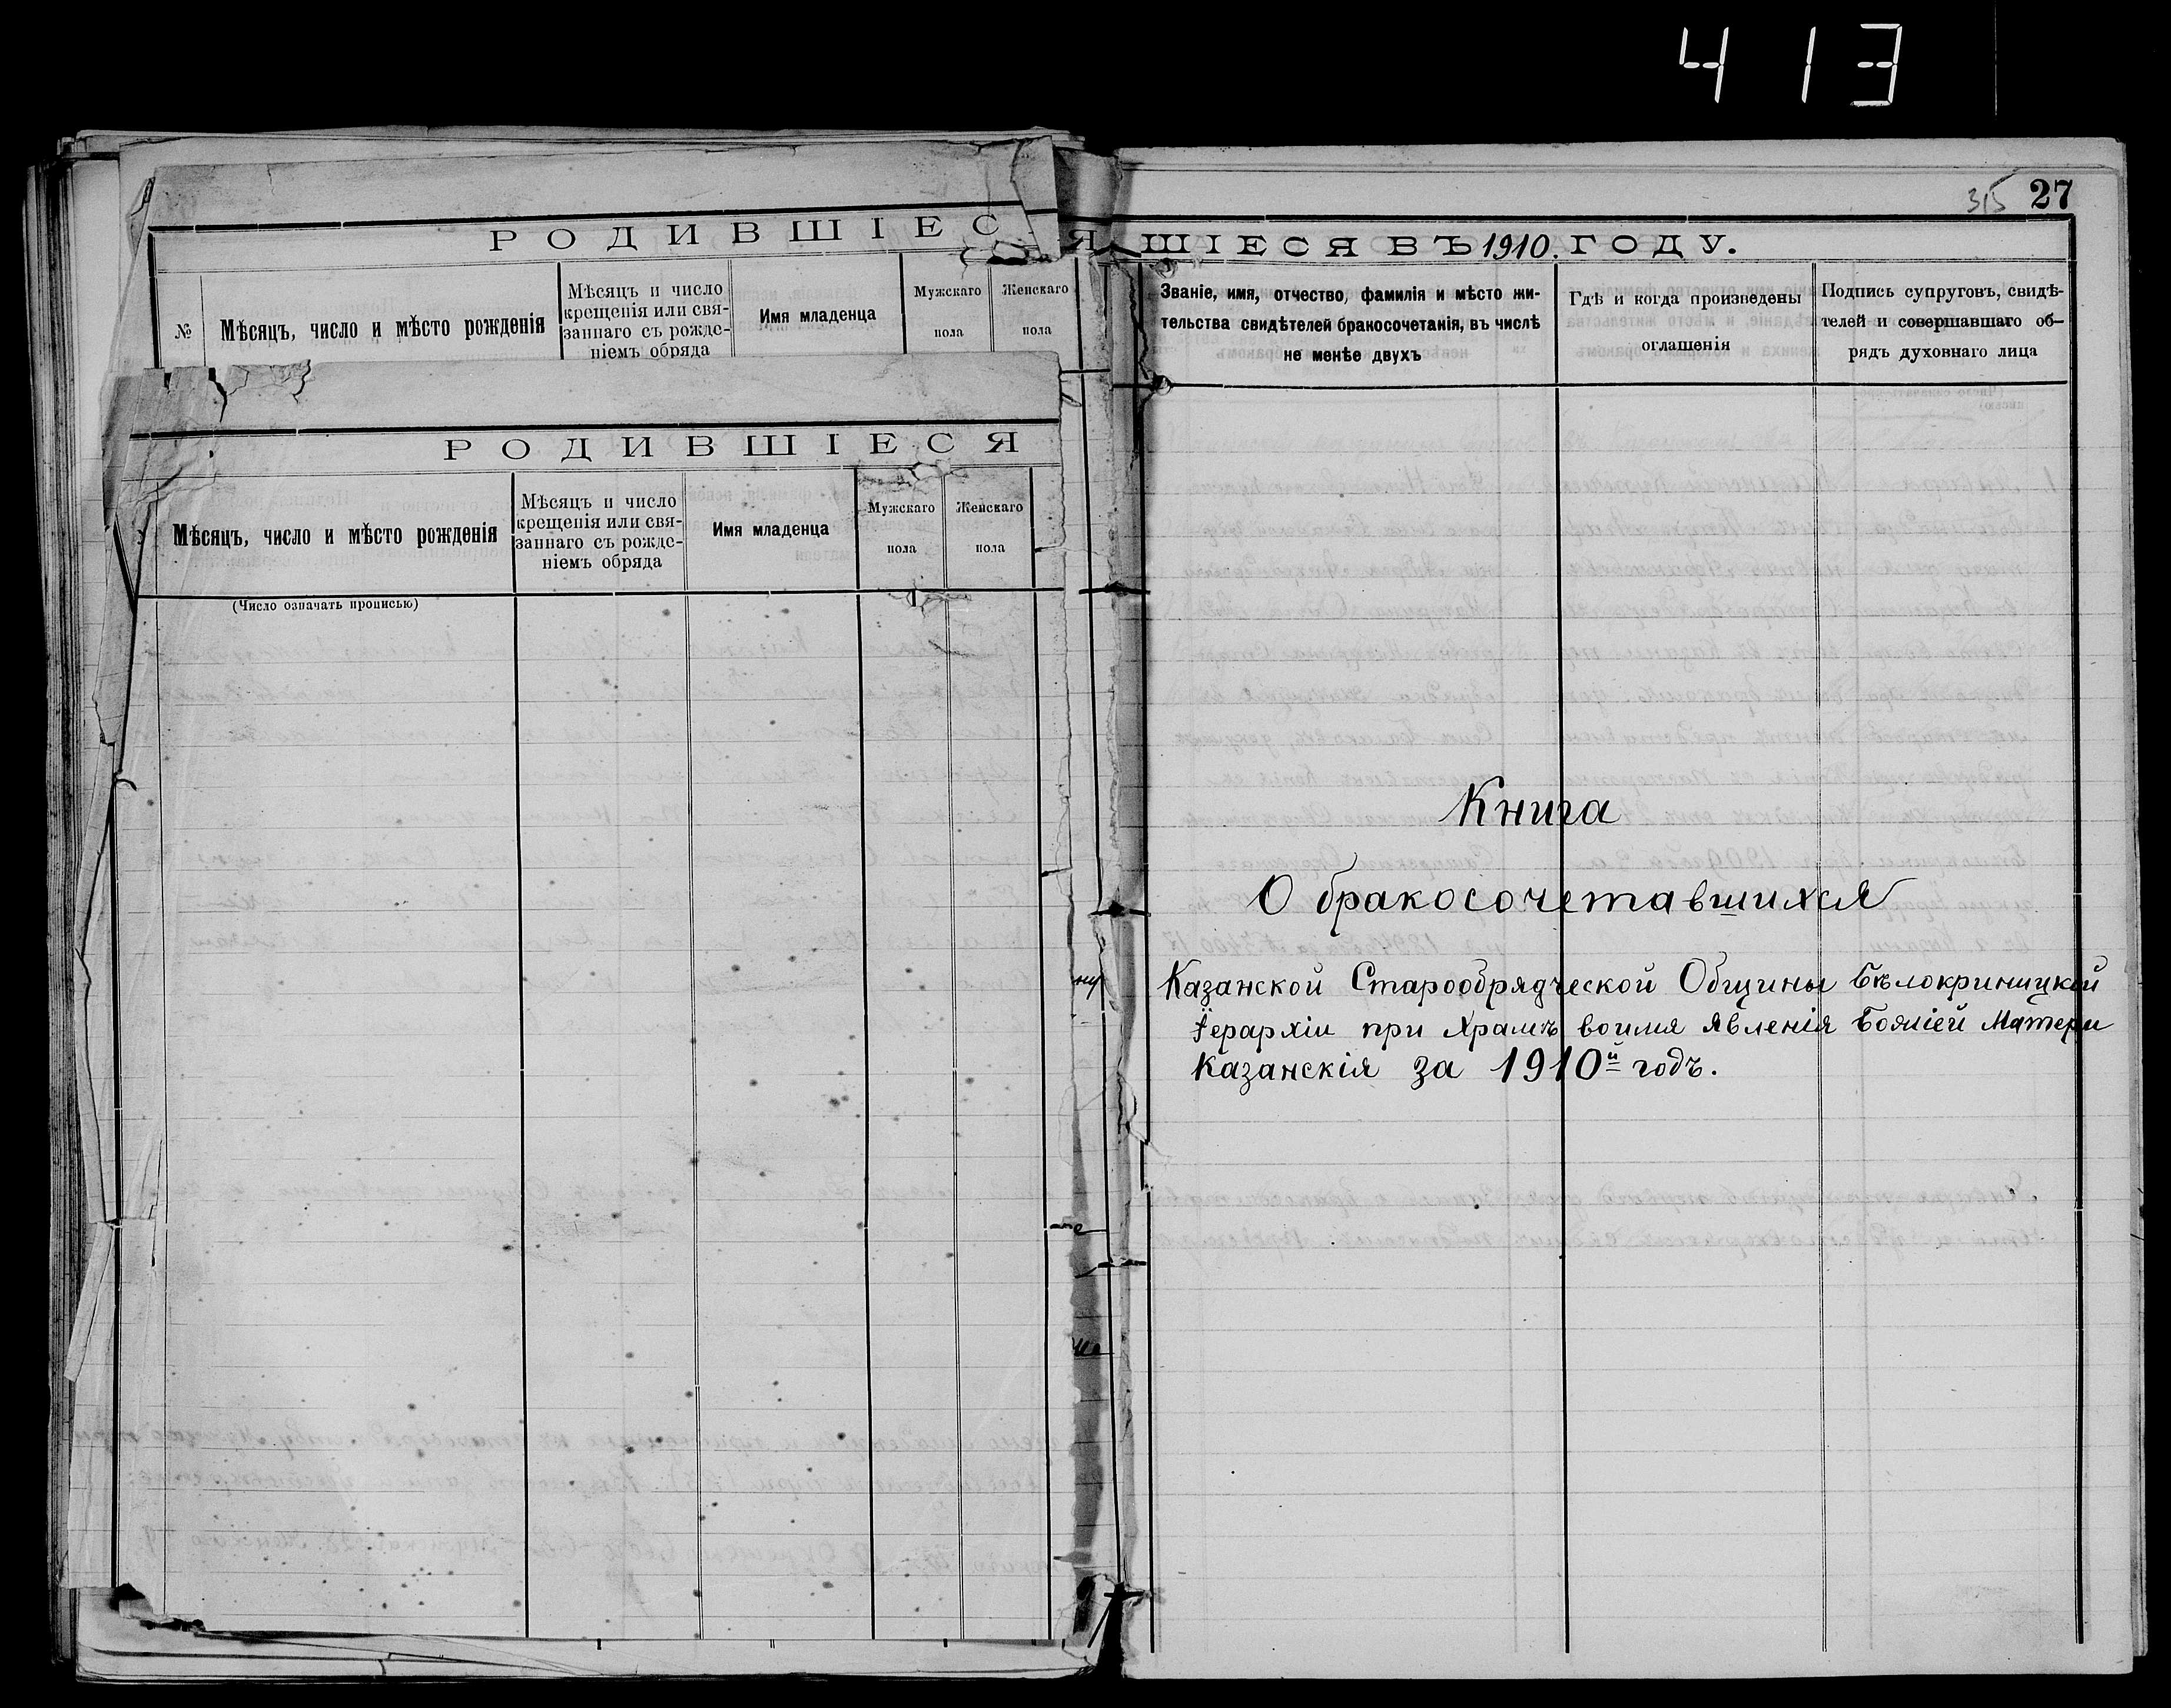 413
315 27
РОДИВШІЕСЯ
№
Мѣсяцъ, число и мѣсто рожденія
Мѣсяцъ и число
крещенія или свя-
заннаго съ рожде-
ніемъ обряда
Имя младенца
Мужскаго
пола
Женскаго
пола
РОДИВШІЕСЯ
Мѣсяцъ, число и мѣсто рожденія
Мѣсяцъ и число
крещенія или свя-
заннаго съ рожде-
ніемъ обряда
Имя младенца
Мужскаго
пола
Женскаго
пола
(Число означать прописью)
ШІЕСЯ ВЪ 1910. ГОДУ.
Званіе, имя, отчество, фамилія и мѣсто жи-
тельства свидѣтелей бракосочетанія, въ числѣ
не менѣе двухъ
Гдѣ и когда произведены
оглашенія
Подпись супруговъ, свидѣ-
телей и совершавшаго об-
рядъ духовнаго лица
Книга
О бракосочетавшихся
Казанской Старообрядческой Общины Бѣлокриницкой
Іерархіи при Храмѣ воимя Явленія Божіей Матери
Казанскія за 1910й годъ.